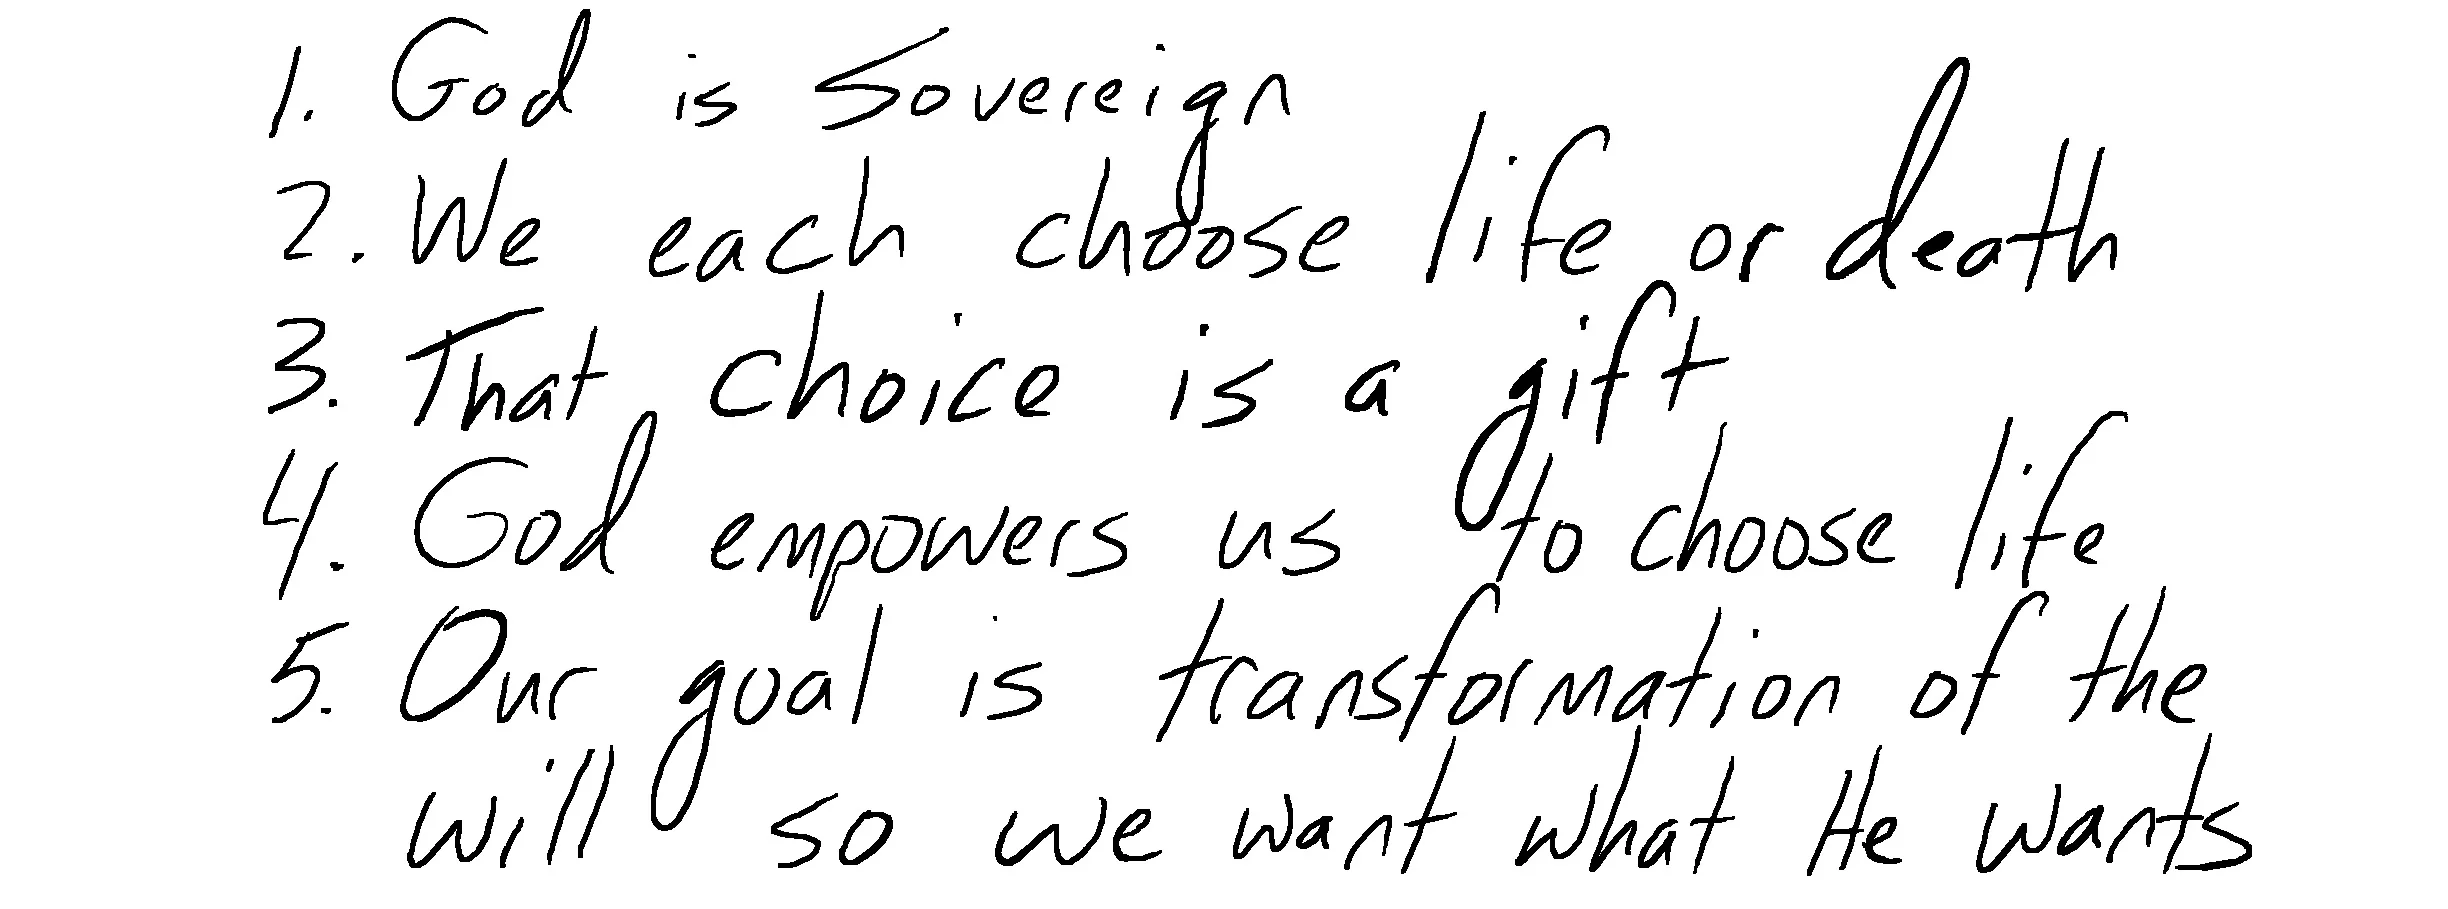 1. God is Sovereign
2. We each choose life or death
3. That choice is a gift
4. God empowers us to choose life
5. Our goal is transformation of the
will so we want what He wants